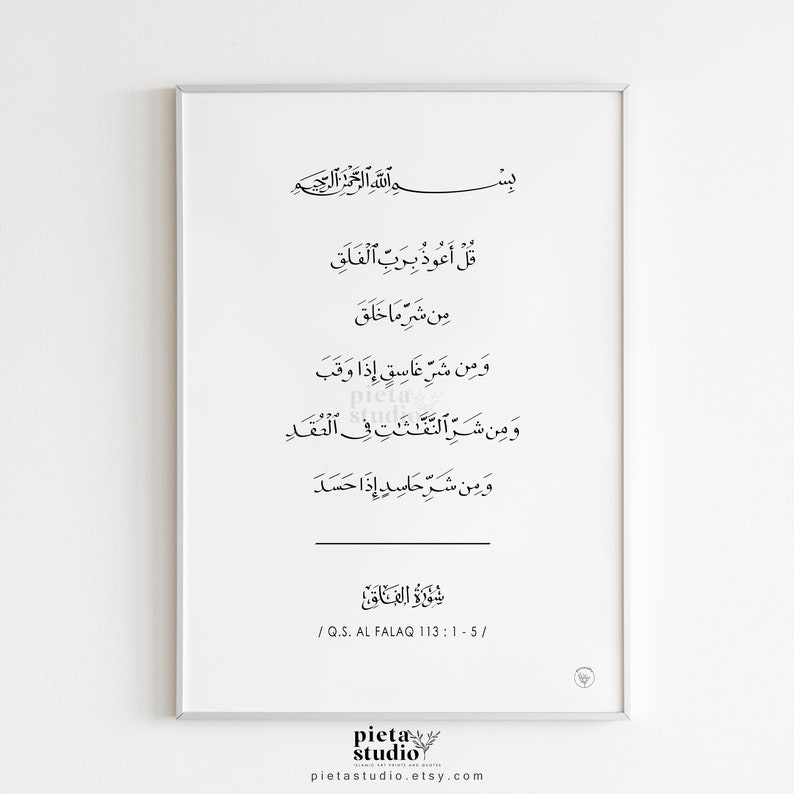 بِسْمِ ٱللَّهِ ٱلرَّحْمَٰنِ ٱلرَّحِيمِ
قُلْ أَعُوذُ بِرَبِّ ٱلْفَلَقِ
مِن شَرِّ مَا خَلَقَ
وَمِن شَرِّ غَاسِقٍ إِذَا وَقَبَ
pieta
studio
وَمِن شَرِّ ٱلنَّفَّٰثَٰتِ فِى ٱلْعُقَدِ
وَمِن شَرِّ حَاسِدٍ إِذَا حَسَدَ
سُورَةُ الفَلَقِ
/ Q.S. AL FALAQ 113 : 1 - 5 /
pieta
studio
ISLAMIC ART PRINTS AND QUOTES
pietastudio.etsy.com